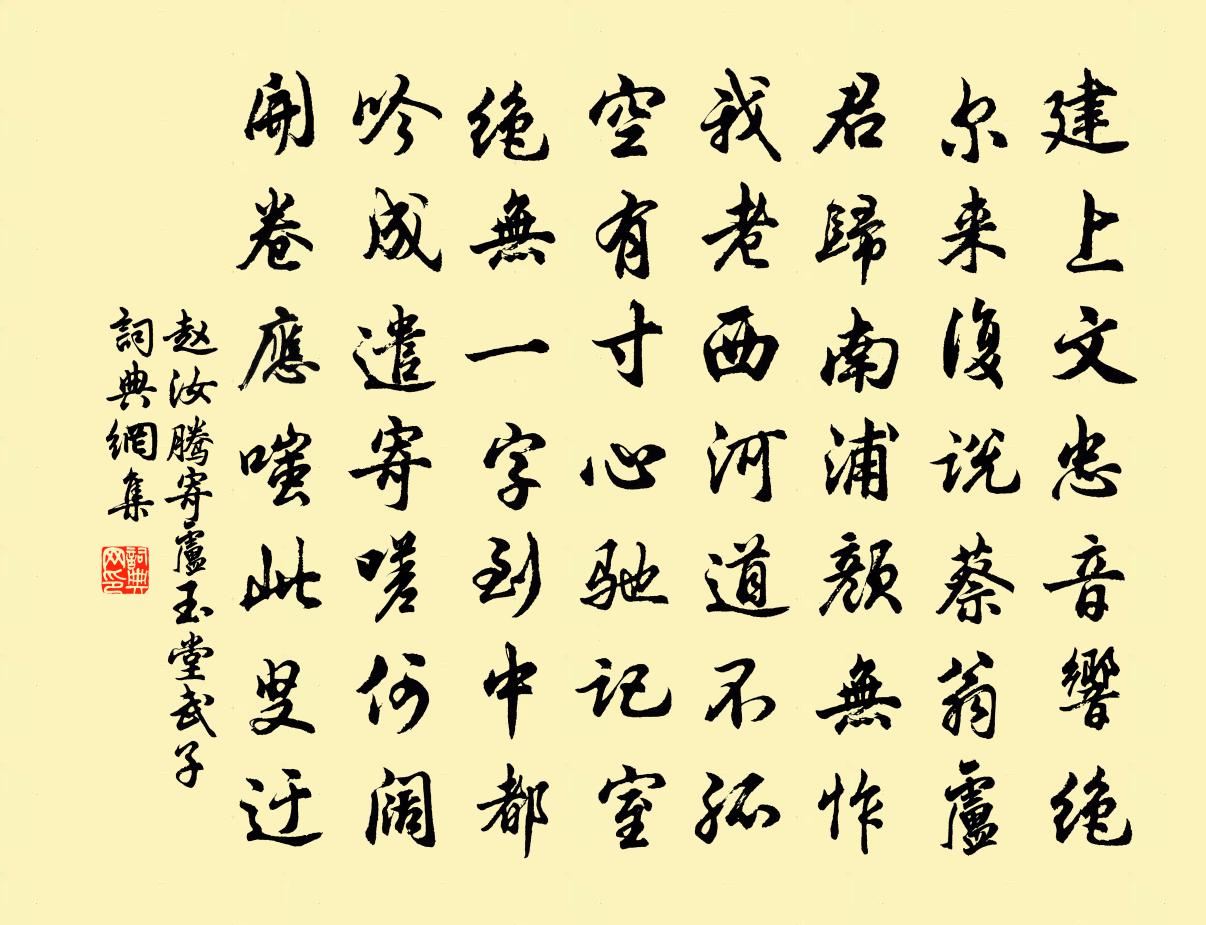 建上文忠音響绝
尔来復説蔡翁盧
君歸南浦顔無怍
我老西河道不孤
空有寸心馳記室
绝無一字到中都
吟成遣寄嗟何阔
開卷應嗤此叟迂
赵汝騰寄盧玉堂武子
詞典網集
詞典网印